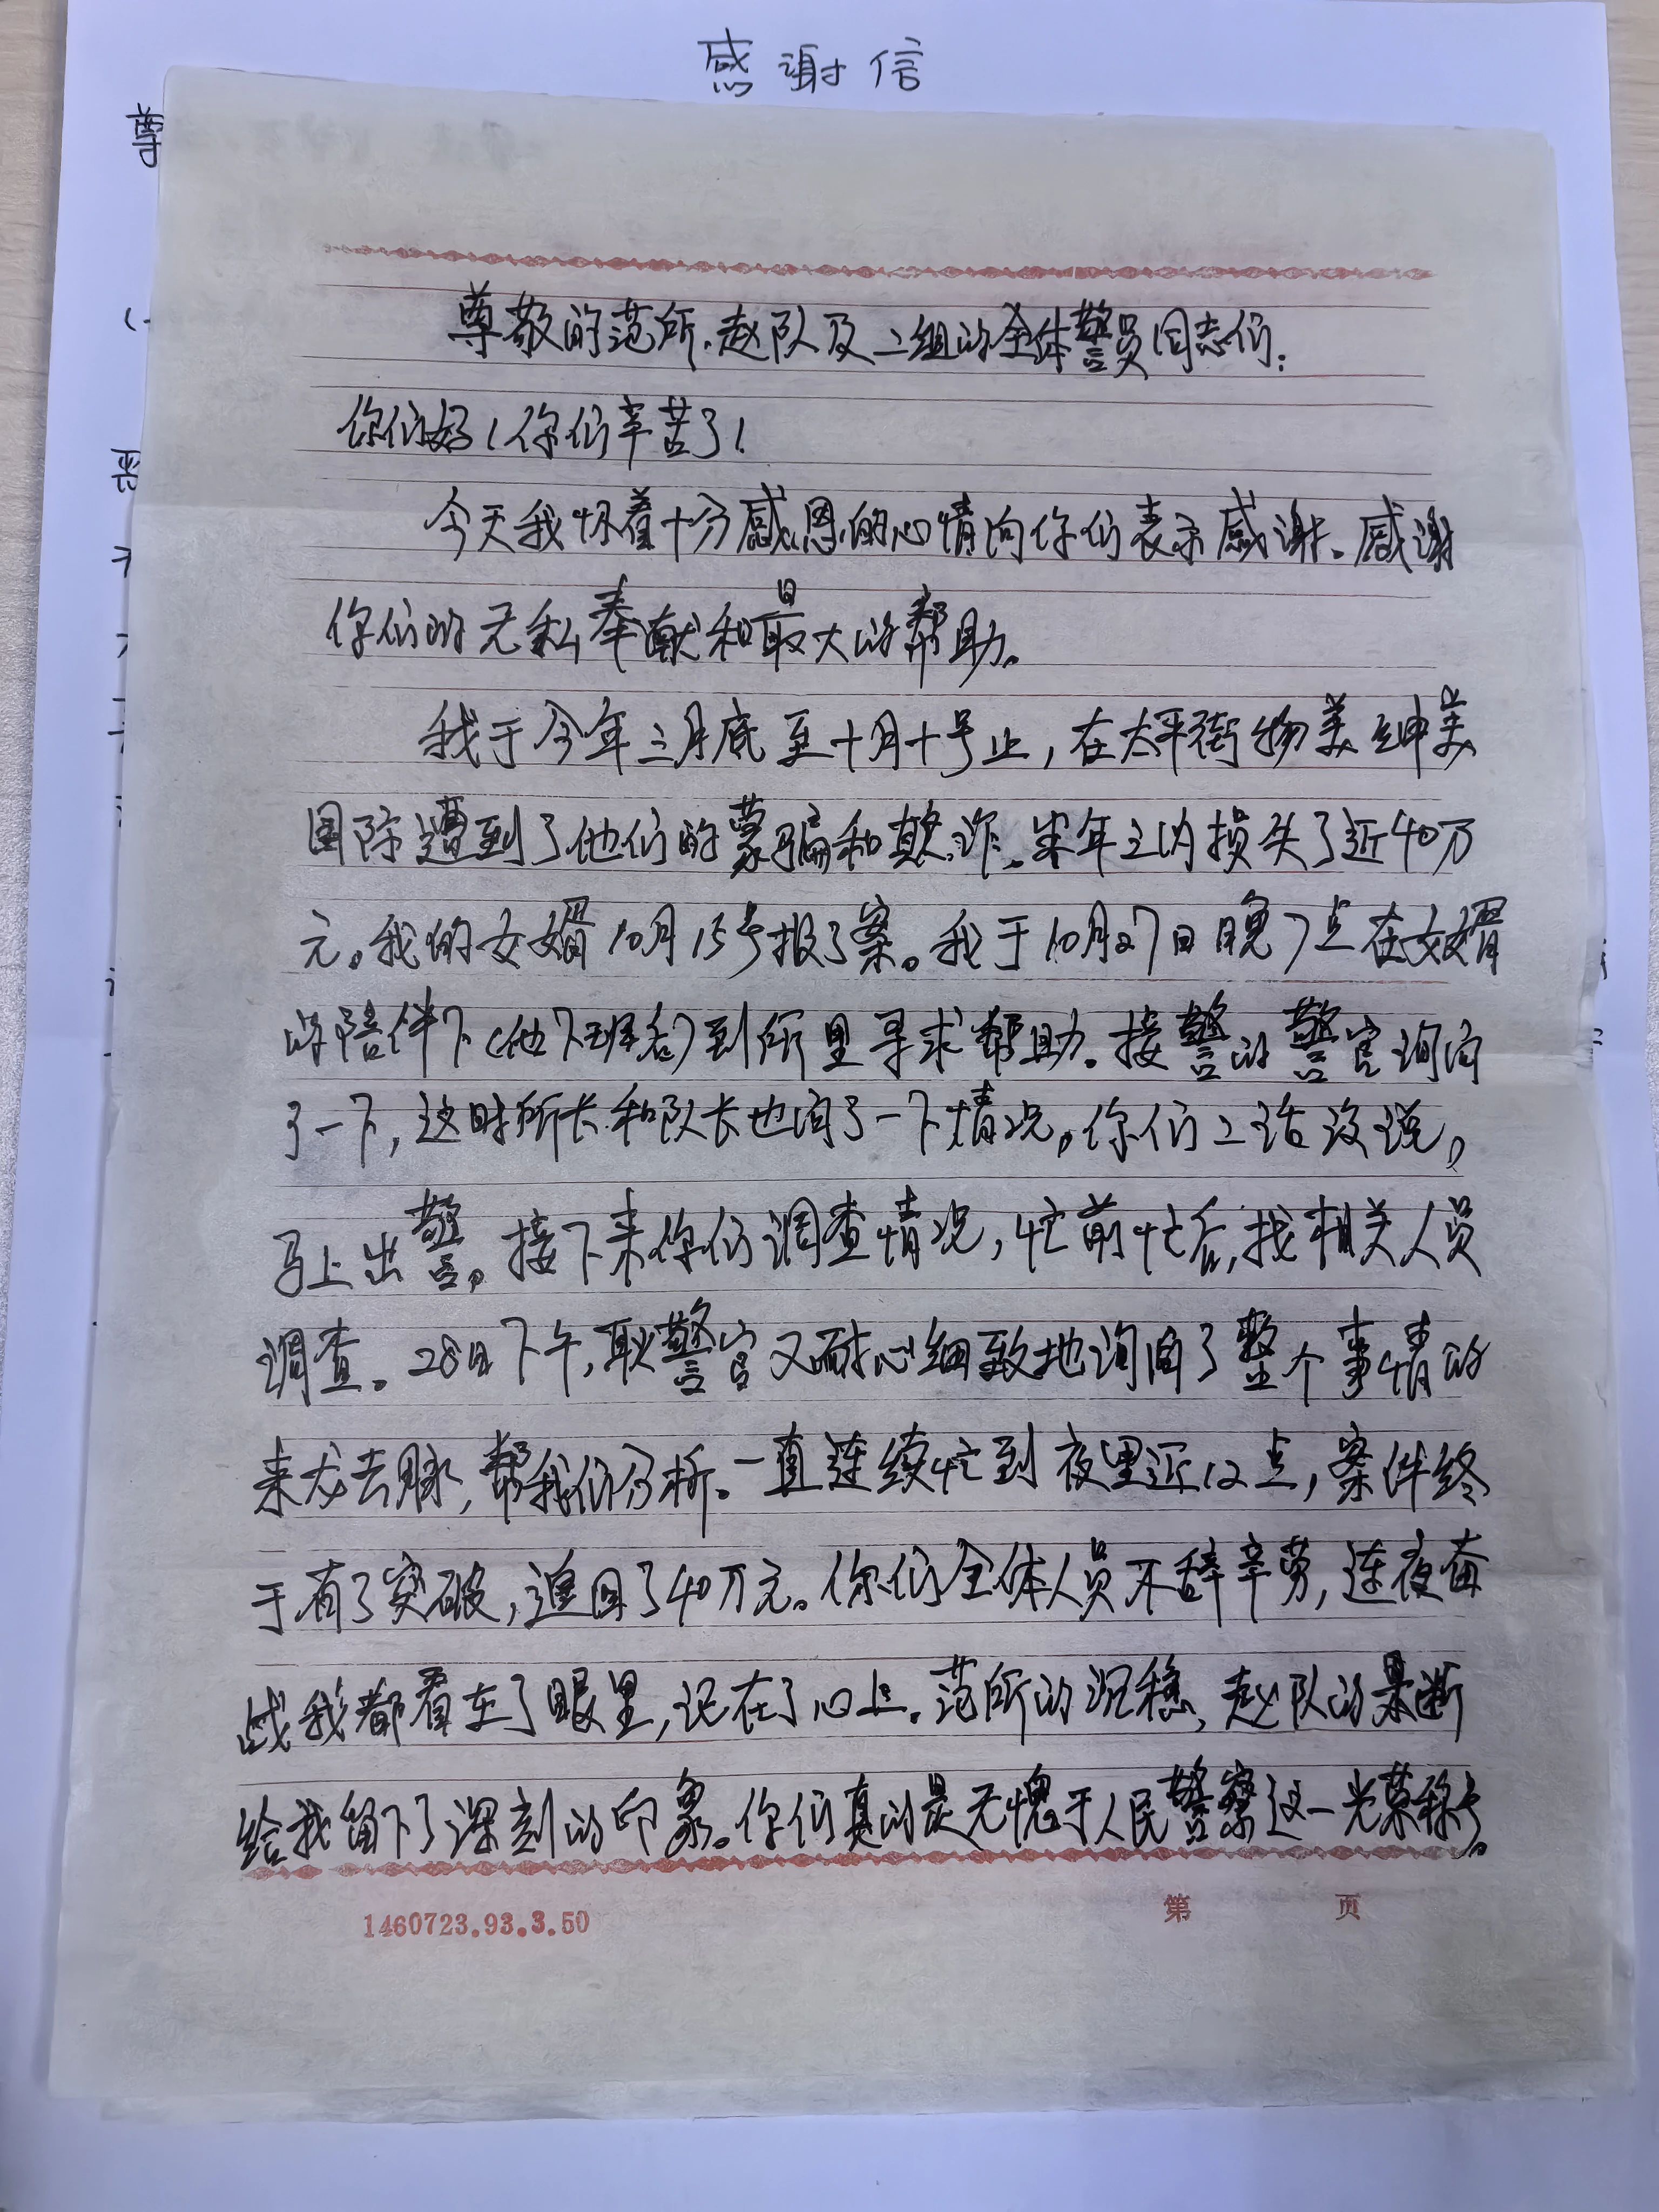 感谢信
尊
尊敬的范所、赵队及二组的全体警员同志们:
你们好!你们辛苦了!
今天我怀着十分感恩的心情向你们表示感谢。感谢
你们的无私奉献和最大的帮助。
我于今年三月底至十月十号止,在太平街物美绅美
国际遭到了他们的蒙骗和欺诈。半年之内损失了近40万
元。我的女婿10月15号报了案。我于10月27日晚7点在女婿
的陪伴下(他下班后)到所里寻求帮助。接警的警官询问
了一下,这时所长和队长也问了一下情况。你们二话没说,
马上出警。接下来你们调查情况,忙前忙后,找相关人员
调查。28日下午,耿警官又耐心细致地询问了整个事情的
来龙去脉,帮我们分析。一直连续忙到夜里近12点,案件终
于有了突破,追回了40万元。你们全体人员不辞辛劳,连夜奋
战我都看在了眼里,记在了心上。范所的沉稳、赵队的果断
给我留下了深刻的印象。你们真的是无愧于人民警察这一光荣称号。
1460723.93.3.50
第 页